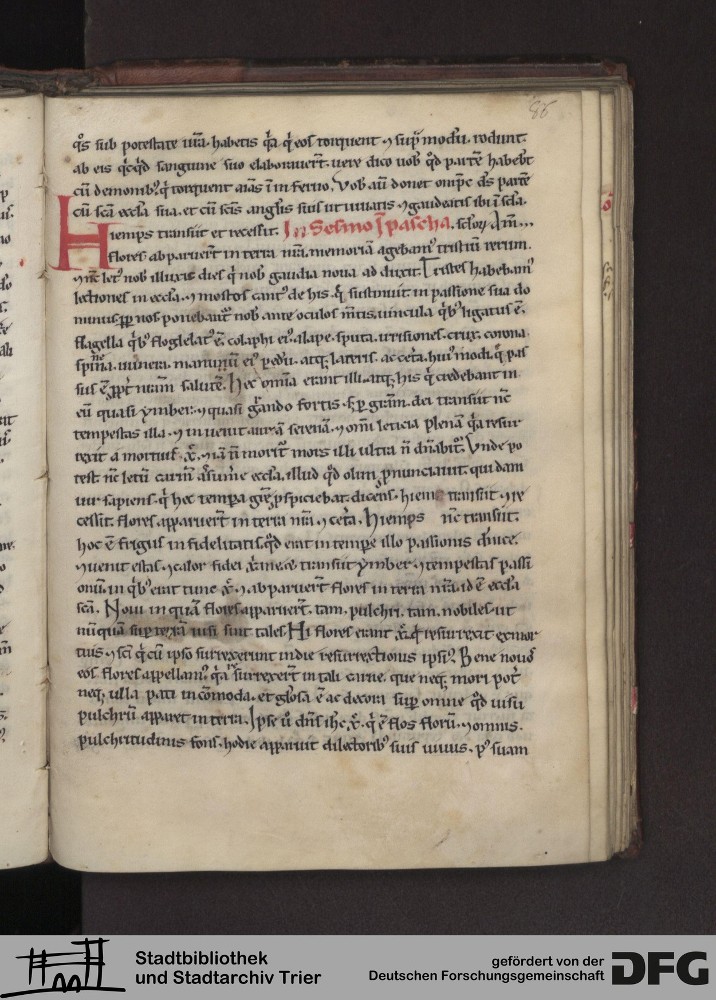 86
q̊s sub potestate ur̄a. habetis q̄a q̇ eos torquent ⁊ sup̄ modū rodunt.
ab eis q̇cq̄d sanguine suo elaborauer̄t. uere dico uob̄ q̄d partē habeb̄t
cū demonib; q̇ torquent aīas ī inferno. Vob̄ aū donet omp̄c dn̄s partē
cū scā eccl̄a sua. et cū scīs anglīs suis ut uiuatis ⁊ gaudeatis ibi ī scl̄a.
Hiemps transiit et recessit. In Sermo ī pascha. sclor̄. Am̄...
flores abparuer̄t in terra nr̄a. memoriā agebam᷒ tristiū rerum.
⁊ nc̄ let᷒ nob̄ illuxit dies q̇ nob̄ gaudia noua adduxit. Tristes habebam᷒
lectiones in eccl̄a ⁊ mostos cant᷒ de his. q̄ sustinuit in passione sua do
minus. ꝓp̄ nos ponebant᷒ nob̄ ante oculos m̄tis. uincula q̇b᷒ ligatus ē.
flagella q̇b᷒ floglelat᷒ ē. colaphi ei᷒. alape. sputa. irrisiones. crux. corona
spinea. uulnera. manuum ei᷒ ⁊ pedū. atq; lateris. ac cet̄a. hui᷒ modi. q̄ pas
sus ē ꝓpt̄ nr̄am salutē. Hec omīa erant illi. atq; his q̇ credebant in
eū quasi ymber. ⁊ quasi grando fortis. S; p̄ gr̄am. dei transiit nc̄
tempestas illa. ⁊ inuenit aurā serenā. ⁊ omī leticia plenā. q̄a resur
rexit a mortuis. xp̄c. ⁊ iā n̄ morit᷒ mors illi ultra n̄ dn̄abit᷒. Vnde po
test nc̄ letū carm̄ assume᷒ eccl̄a. illud q̄d olim p̄nunciauit. quidam
uir sapiens. q̇ hec tempora ꝓspiciebat. dicens. hiemps transiit ⁊ re
cessit. flores apparuer̄t in terra nr̄a ⁊ cet̄a. Hiemps nc̄ transiit.
hoc ē frigus infidelitatis. q̄d erat in tempe illo passionis dn̄ice.
⁊ uenit estas. ⁊ calor fidei xp̄iane. transiit ymber ⁊ tempestas passi
onū. in q̇b᷒ erat tunc xp̄c. ⁊ abparuer̄t flores in terra nr̄a. id ē eccl̄a
scā. Noui inquā flores apparuer̄t. tam. pulchri. tam. nobiles. ut
nūquā sup̄ terrā uisi sint tales. Hi flores erant xp̄c. q̇ resurrexit ex mor
tuis ⁊ scī q̇ cū ipso surrexerunt in die resurrectionis ipsi᷒. Bene nouos
eos flores appellam᷒. q̄a surrexer̄t in tali carne. que neq; mori pot̄
neq; ulla pati in cōmoda. et gl̄osa ē ac decora sup̄ omne q̄d uisu
pulchrū apparet in terra. Ipse ū dn̄s ihc̄ xp̄c. q̇ ē flos florū. ⁊ omnis.
pulchritudinis fons. hodie apparuit dilectorib᷒ suis uiuus. p᷒ suam
Stadtbibliothek
und Stadtarchiv Trier
gefördert von der
Deutschen Forschungsgemeinschaft
DFG